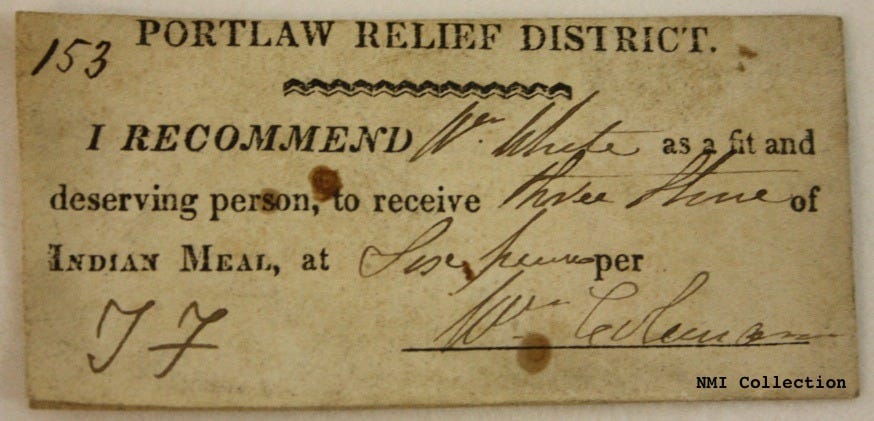 153
PORTLAW RELIEF DISTRICT.
I RECOMMEND Wm White as a fit and
deserving person, to receive three Stone of
INDIAN MEAL, at Six pence per
J F
Wm Coleman
NMI Collection